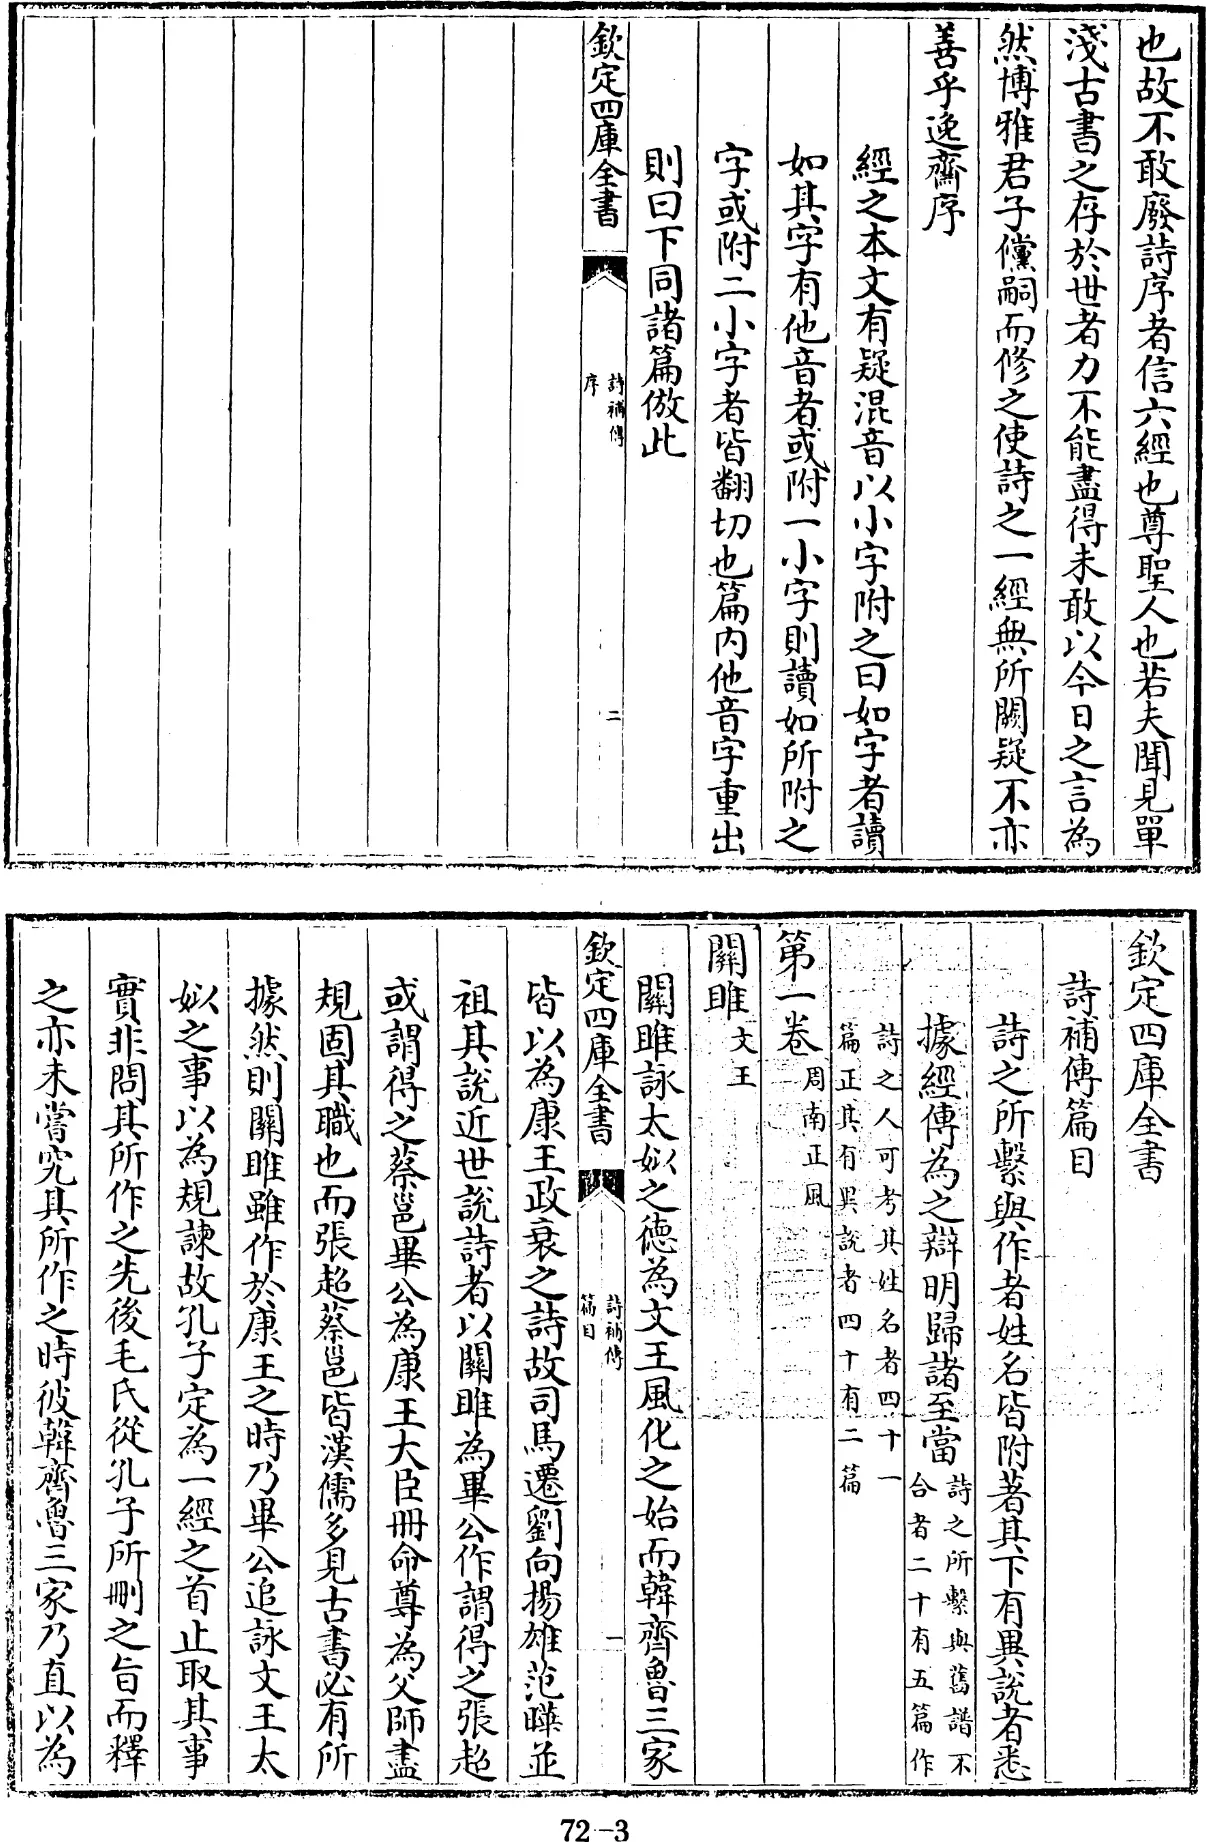 也故不敢廢詩序者信六經也尊聖人也若夫聞見單
淺古書之存於世者力不能盡得未敢以今日之言為
然博雅君子儻嗣而修之使詩之一經無所闕疑不亦
善乎逸齋序
經之本文有疑混音以小字附之曰如字者讀
如其字有他音者或附一小字則讀如所附之
字或附二小字者皆翻切也篇内他音字重出
則曰下同諸篇倣此
欽定四庫全書
詩補傳
序
二
欽定四庫全書
詩補傳篇目
詩之所繫與作者姓名皆附著其下有異說者悉
據經傳為之辯明歸諸至當
詩之所繫與舊譜不
合者二十有五篇作
詩之人可考其姓名者四十一
篇正其有異說者四十有二篇
第一卷 周南正風
關雎 文王
關雎詠太姒之德為文王風化之始而韓齊魯三家
欽定四庫全書
詩補傳
篇目
一
皆以為康王政衰之詩故司馬遷劉向揚雄范曄並
祖其說近世說詩者以關雎為畢公作謂得之張超
或謂得之蔡邕畢公為康王大臣冊命尊為父師盡
規固其職也而張超蔡邕皆漢儒多見古書必有所
據然則關雎雖作於康王之時乃畢公追詠文王太
姒之事以為規諫故孔子定為一經之首止取其事
實非問其所作之先後毛氏從孔子所刪之旨而釋
之亦未嘗究其所作之時彼韓齊魯三家乃直以為
72-3